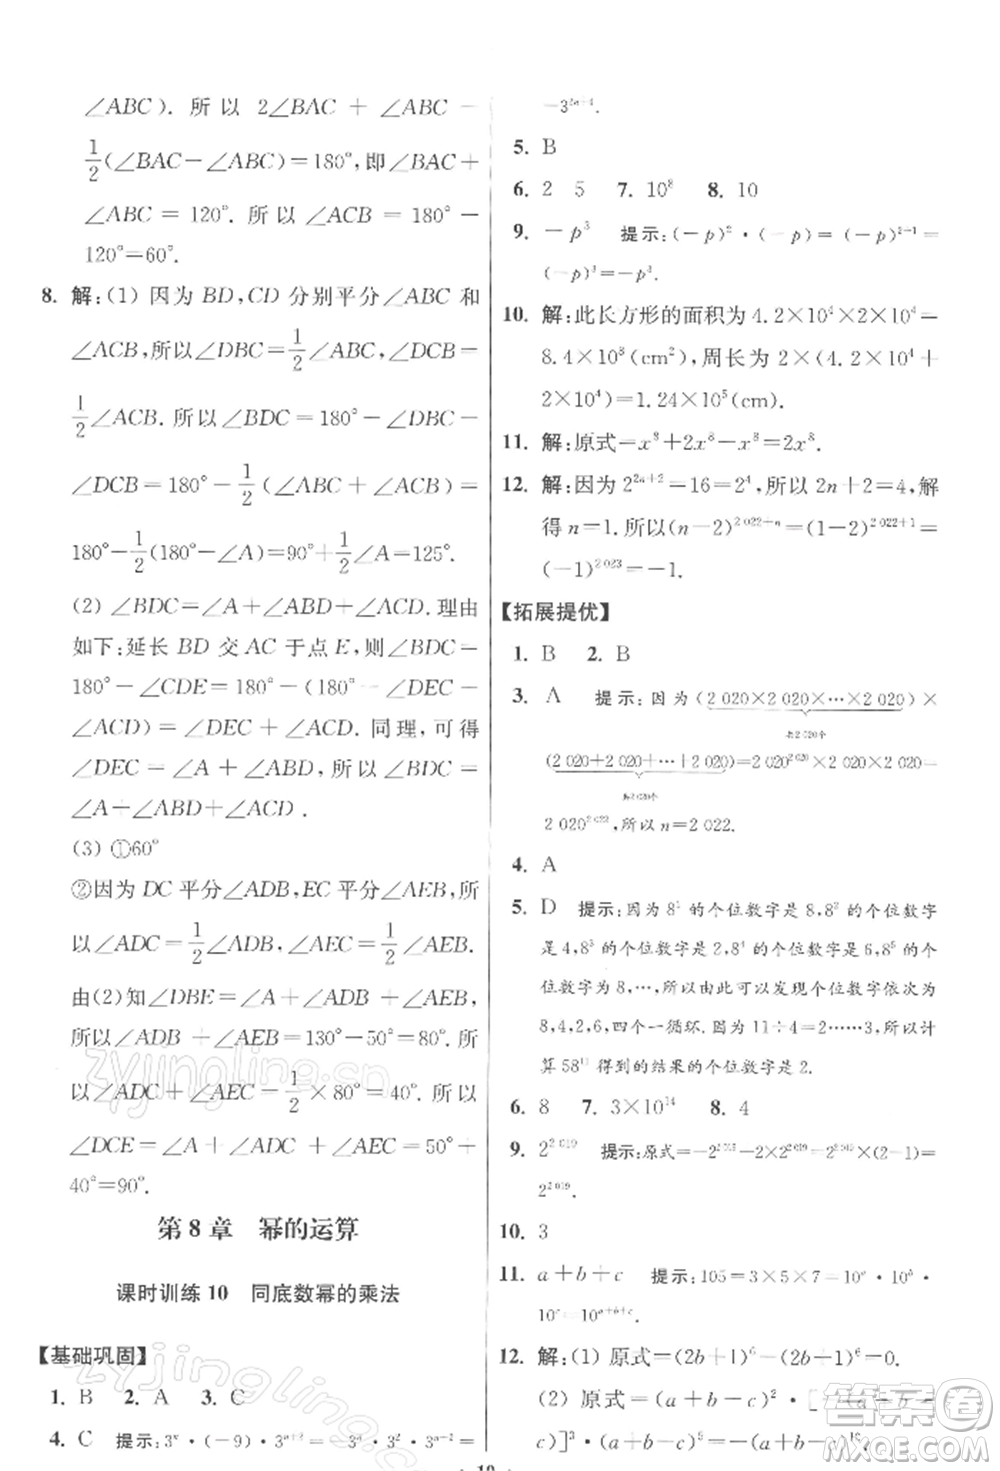 ∠ABC). 所以 2∠BAC + ∠ABC −
1/2(∠BAC−∠ABC)=180°, 即∠BAC+
∠ABC = 120°. 所以 ∠ACB = 180° −
120°=60°.
8. 解:(1) 因为 BD,CD 分别平分∠ABC 和
∠ACB, 所以∠DBC=1/2∠ABC, ∠DCB=
1/2∠ACB. 所以∠BDC=180°−∠DBC−
∠DCB = 180° − 1/2(∠ABC + ∠ACB) =
180°−1/2(180°−∠A)=90°+1/2∠A=125°.
(2) ∠BDC=∠A+∠ABD+∠ACD. 理由
如下:延长 BD 交 AC 于点 E, 所以∠BDC=
180° − ∠CDE = 180° − (180° − ∠DEC −
∠ACD) = ∠DEC + ∠ACD. 同理, 可得
∠DEC = ∠A + ∠ABD. 所以 ∠BDC =
∠A+∠ABD+∠ACD.
(3) ①60°
②因为 DC 平分∠ADB,EC 平分∠AEB,所
以∠ADC=1/2∠ADB,∠AEC=1/2∠AEB.
由(2)知∠DBE=∠A+∠ADB+∠AEB,
所以∠ADB+∠AEB=130°−50°=80°. 所
以 ∠ADC + ∠AEC = 1/2 × 80° = 40°. 所以
∠DCE = ∠A + ∠ADC + ∠AEC = 50° +
40°=90°.
第 8 章 幂的运算
课时训练 10 同底数幂的乘法
【基础巩固】
1. B 2. A 3. C
4. C 提示:3ⁿ·(−9)·3ⁿ⁺²=−3ⁿ·3²·3ⁿ⁺²=
5. B
6. 2 5 7. 10⁸ 8. 10
9. −p³ 提示:(−p)²·(−p)=(−p)²⁺¹=
(−p)³=−p³.
10. 解:此长方形的面积为 4.2×10⁴×2×10⁴=
8.4×10⁸(cm²),周长为 2×(4.2×10⁴+
2×10⁴)=1.24×10⁵(cm).
11. 解:原式=x⁸+2x⁸−x⁸=2x⁸.
12. 解:因为 2²ⁿ⁺²=16=2⁴,所以 2n+2=4,解
得 n=1. 所以(n−2)²⁰²²⁺ⁿ=(1−2)²⁰²²⁺¹=
(−1)²⁰²³=−1.
【拓展提优】
1. B 2. B
3. A 提示:因为(2 020×2 020×…×2 020)×
共2 020个
(2 020+2 020+…+2 020)=2 020²⁰²⁰×2 020²=
共2 020个
2 020²⁰²²,所以 n=2 022.
4. A
5. D 提示:因为 8¹ 的个位数字是 8,8² 的个位数字
是 4,8³ 的个位数字是 2,8⁴ 的个位数字是 6,8⁵ 的个
位数字为 8,…,所以可以发现个位数字依次为
8,4,2,6,四个一循环. 因为 11÷4=2……3,所以计
算 58¹¹ 得到的结果的个位数字是 2.
6. 8 7. 3×10¹⁴ 8. 4
9. 2²⁰¹⁹ 提示:原式=−2²⁰¹⁹+2×2²⁰¹⁹=2²⁰¹⁹×(2−1)=
2²⁰¹⁹.
10. 3
11. a+b+c 提示:105=3×5×7=10ᵃ·10ᵇ·
10ᶜ=10ᵃ⁺ᵇ⁺ᶜ.
12. 解:(1) 原式=(2b−1)⁶−(2b−1)⁶=0.
(2) 原式=(a+b−c)²·[−(a−b−
c)]³=−(a+b−c)⁵·
10
zyjingling.cn
zyjingling
答案卷
MXQE.COM